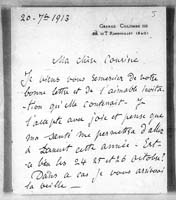 20-7bre 1913
5
GEORGE COLOMBE DE
Ma chère Cousine
Je viens vous remercier de votre
bonne lettre et de l'aimable invita-
tion qu'elle contenait. Je
l'accepte avec joie et pense que
ma santé me permettra d'aller
à cette année. Est-
ce bien les 24 et 26 octobre?
Dans ce cas je vous arriverai
la veille —